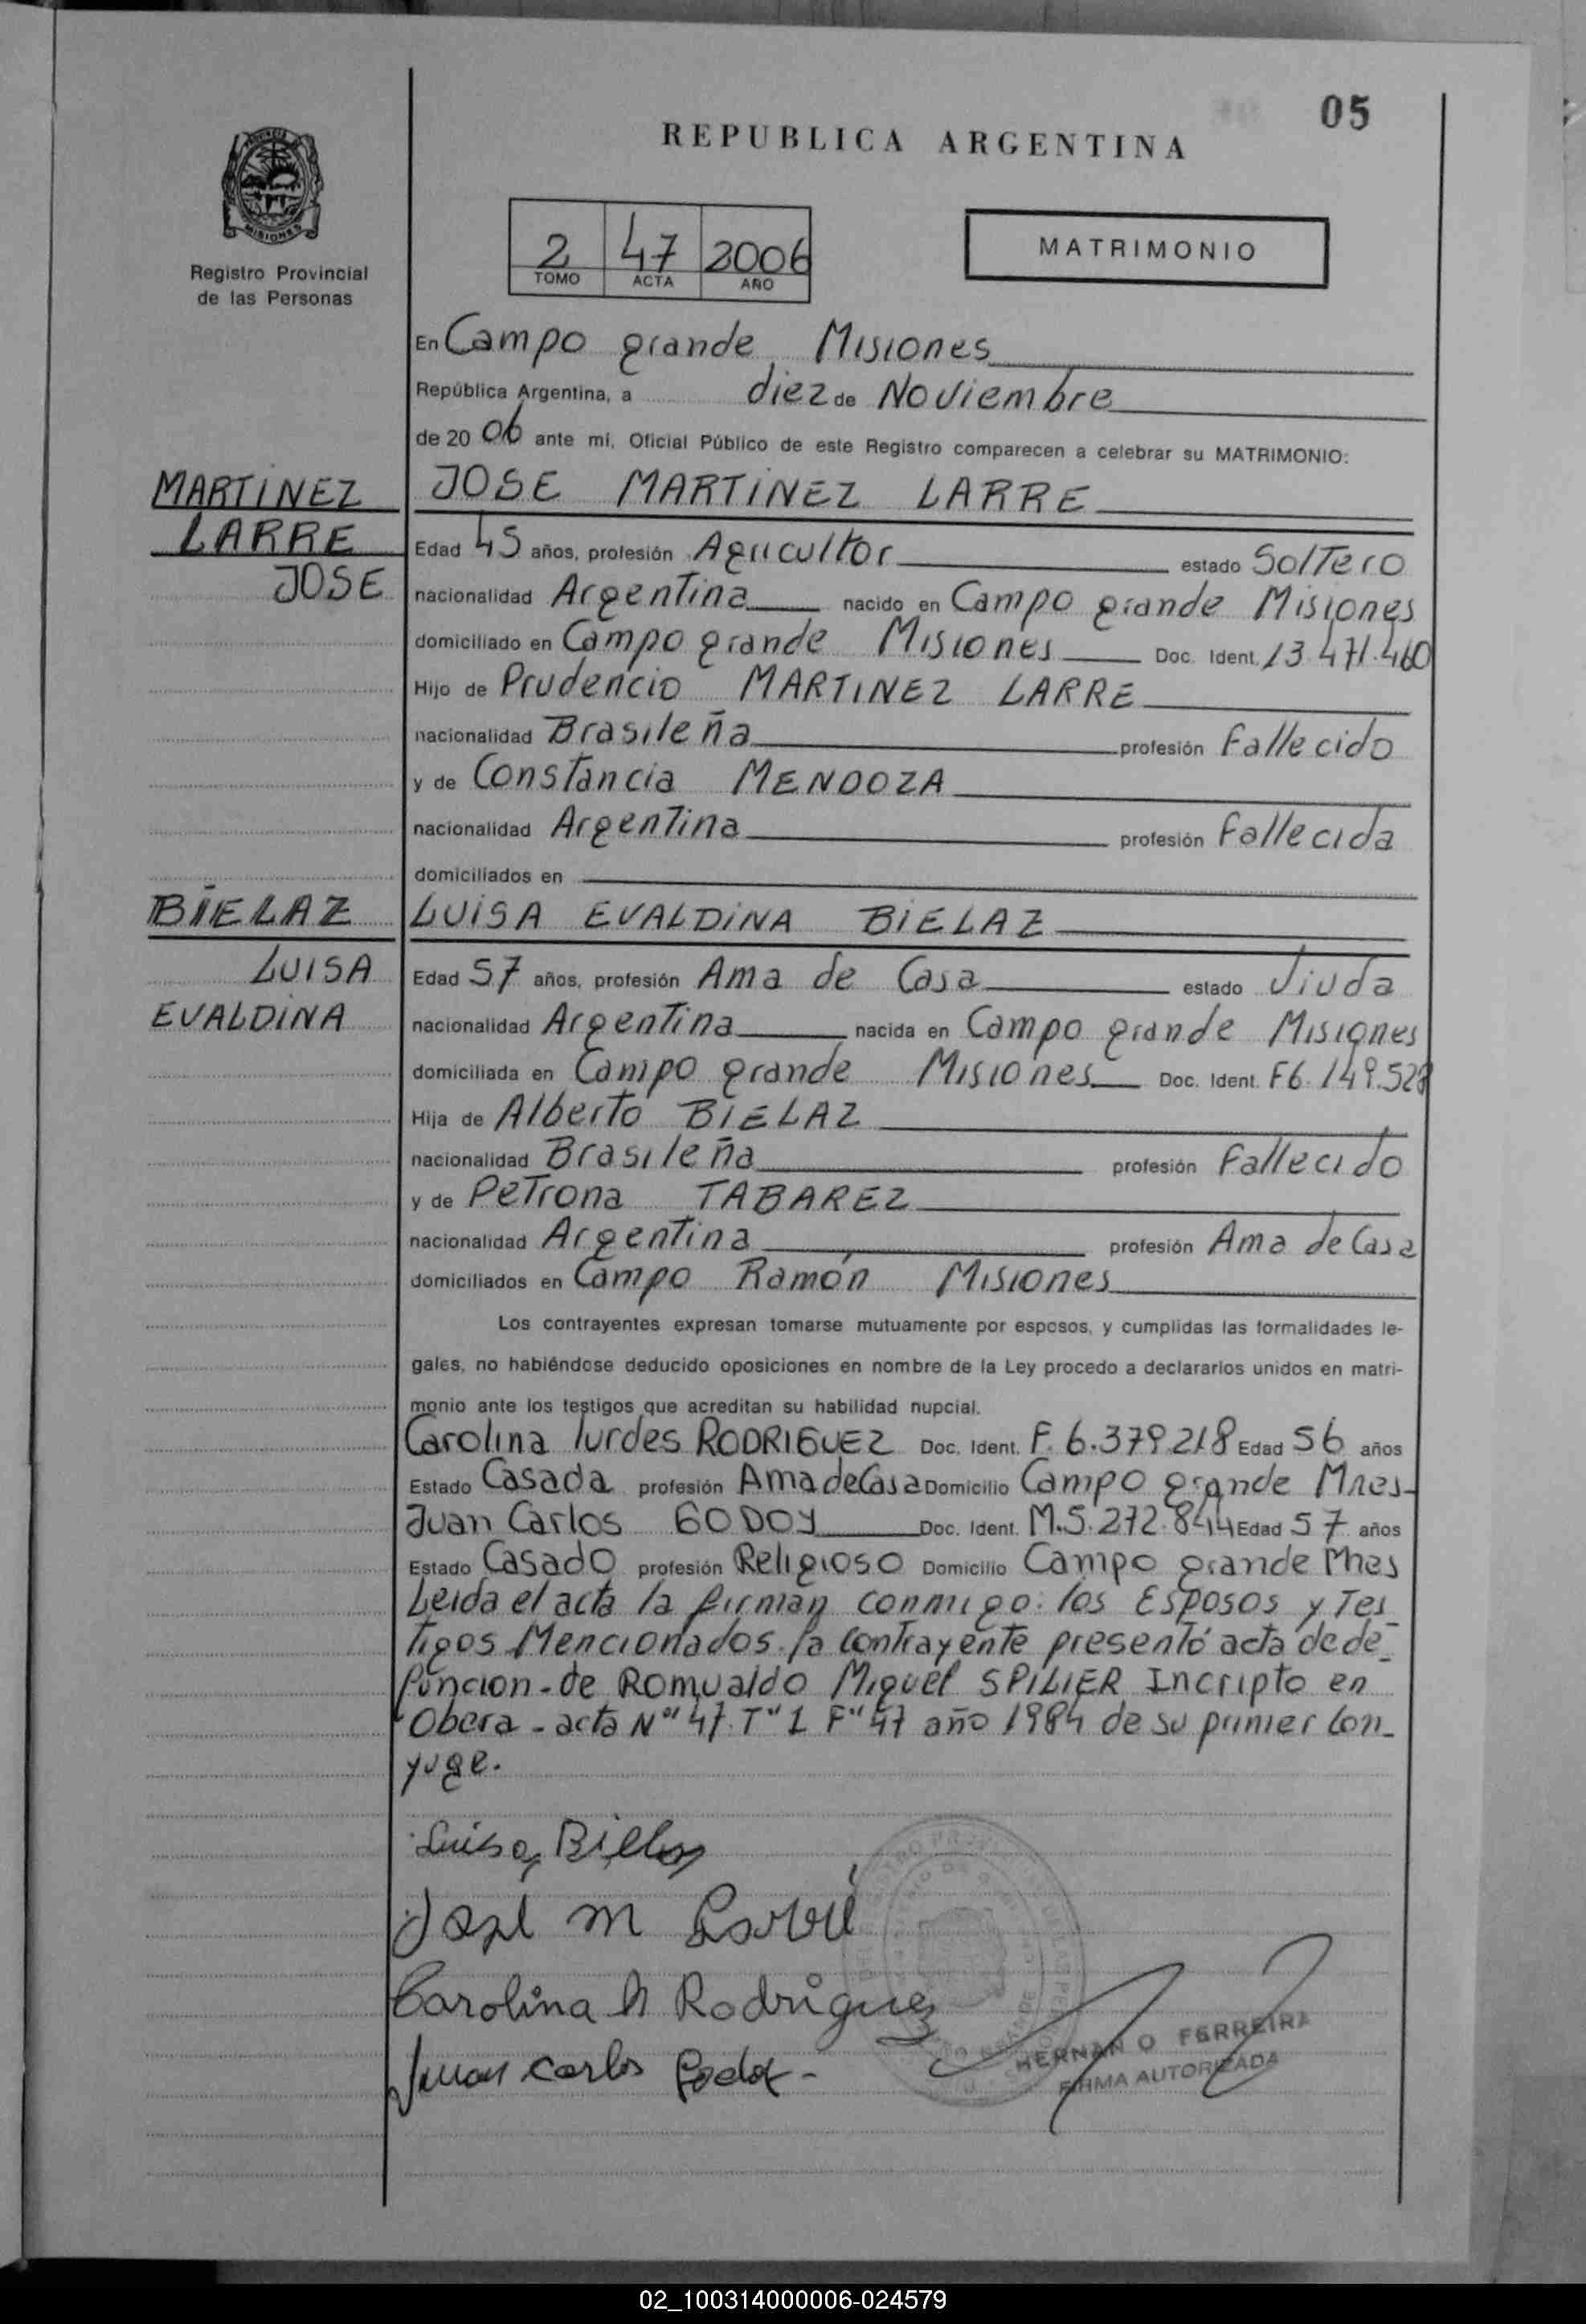 05
REPUBLICA ARGENTINA
MISIONES
Registro Provincial
de las Personas
2 47 2006
TOMO ACTA AÑO
MATRIMONIO
En Campo grande Misiones
República Argentina, a diez de Noviembre
de 20 06 ante mí, Oficial Público de este Registro comparecen a celebrar su MATRIMONIO:
MARTINEZ
LARRE
JOSE
JOSE MARTINEZ LARRE
Edad 45 años, profesión Agricultor estado Soltero
nacionalidad Argentina nacido en Campo grande Misiones
domiciliado en Campo grande Misiones Doc. Ident. 13.471.460
Hijo de Prudencio MARTINEZ LARRE
nacionalidad Brasileña profesión Fallecido
y de Constancia MENDOZA
nacionalidad Argentina profesión Fallecida
domiciliados en
BIELAZ
LUISA
EVALDINA
LUISA EVALDINA BIELAZ
Edad 57 años, profesión Ama de Casa estado Viuda
nacionalidad Argentina nacida en Campo grande Misiones
domiciliada en Campo grande Misiones Doc. Ident. F6.149.528
Hija de Alberto BIELAZ
nacionalidad Brasileña profesión Fallecido
y de Petrona TABAREZ
nacionalidad Argentina profesión Ama de Casa
domiciliados en Campo Ramón Misiones
Los contrayentes expresan tomarse mutuamente por esposos, y cumplidas las formalidades le-
gales, no habiéndose deducido oposiciones en nombre de la Ley procedo a declararlos unidos en matri-
monio ante los testigos que acreditan su habilidad nupcial.
Carolina lurdes RODRIGUEZ Doc. Ident. F. 6.379.218 Edad 56 años
Estado Casada profesión Ama de Casa Domicilio Campo grande Mnes-
Juan Carlos GODOY Doc. Ident. M.5.272.844 Edad 57 años
Estado Casado profesión Religioso Domicilio Campo grande Mnes
Leida el acta la firman conmigo: los Esposos y Tes_
tigos Mencionados. la contrayente presentó acta de de_
funcion - de Romualdo Miguel SPILIER Incripto en
Obera - acta N° 47. T° 1 F° 47 año 1984 de su primer Con_
yuge.
Luisa Bielaz
José M Larre
Carolina L Rodriguez
Juan Carlos Godoy -
HERNAN O FERREIRA
FIRMA AUTORIZADA
02_100314000006-024579